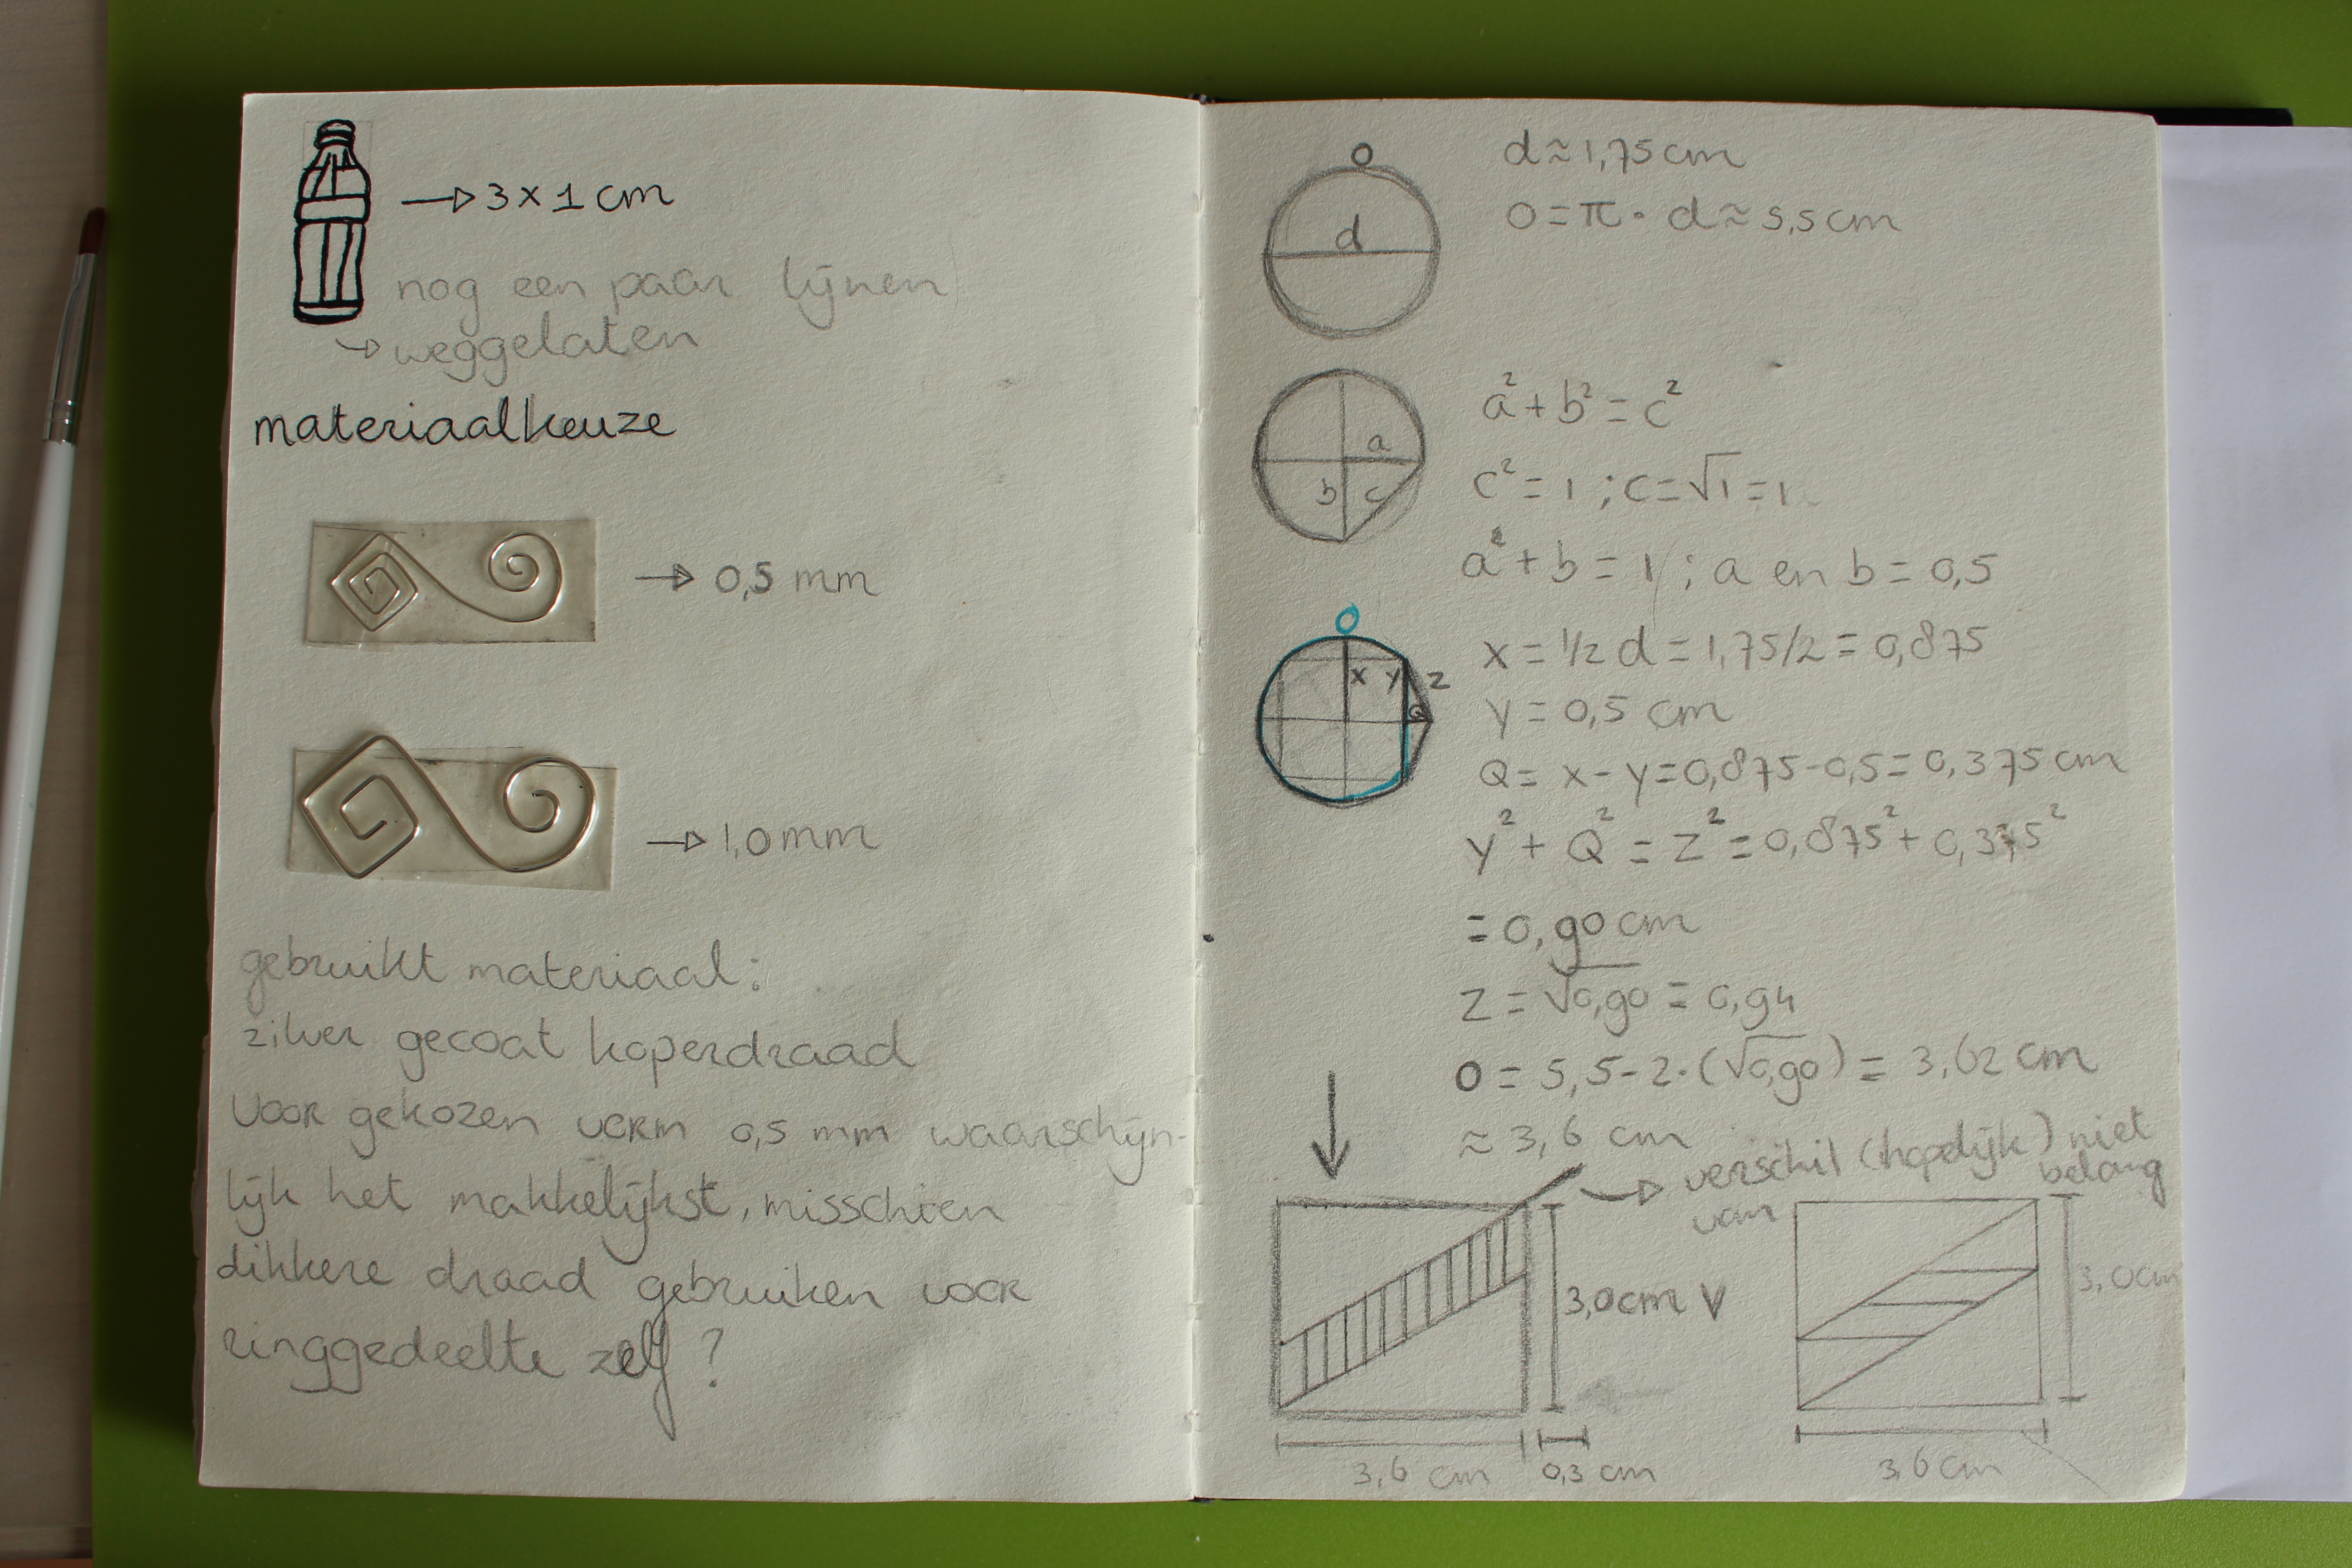 → 3 x 1 cm
nog een paar lijnen
→ weggelaten
materiaalkeuze
→ 0,5 mm
→ 1,0 mm
gebruikt materiaal:
zilver gecoat koperdraad
Voor gekozen vorm 0,5 mm waarschijn-
lijk het makkelijkst, misschien
dikkere draad gebruiken voor
ringgedeelte zelf?
O
d
d ≈ 1,75 cm
O = π · d ≈ 5,5 cm
a
b
c
a² + b² = c²
c² = 1 ; c = √1 = 1
a² + b = 1 ; a en b = 0,5
O
x y z
Q
x = 1/2 d = 1,75/2 = 0,875
y = 0,5 cm
Q = x - y = 0,875 - 0,5 = 0,375 cm
y² + Q² = z² = 0,875² + 0,375²
= 0,90 cm
z = √0,90 = 0,94
O = 5,5 - 2 · (√0,90) = 3,62 cm
≈ 3,6 cm
→ verschil (hopelijk) niet
van belang
3,0 cm V
3,6 cm
0,3 cm
3,0 cm
3,6 cm